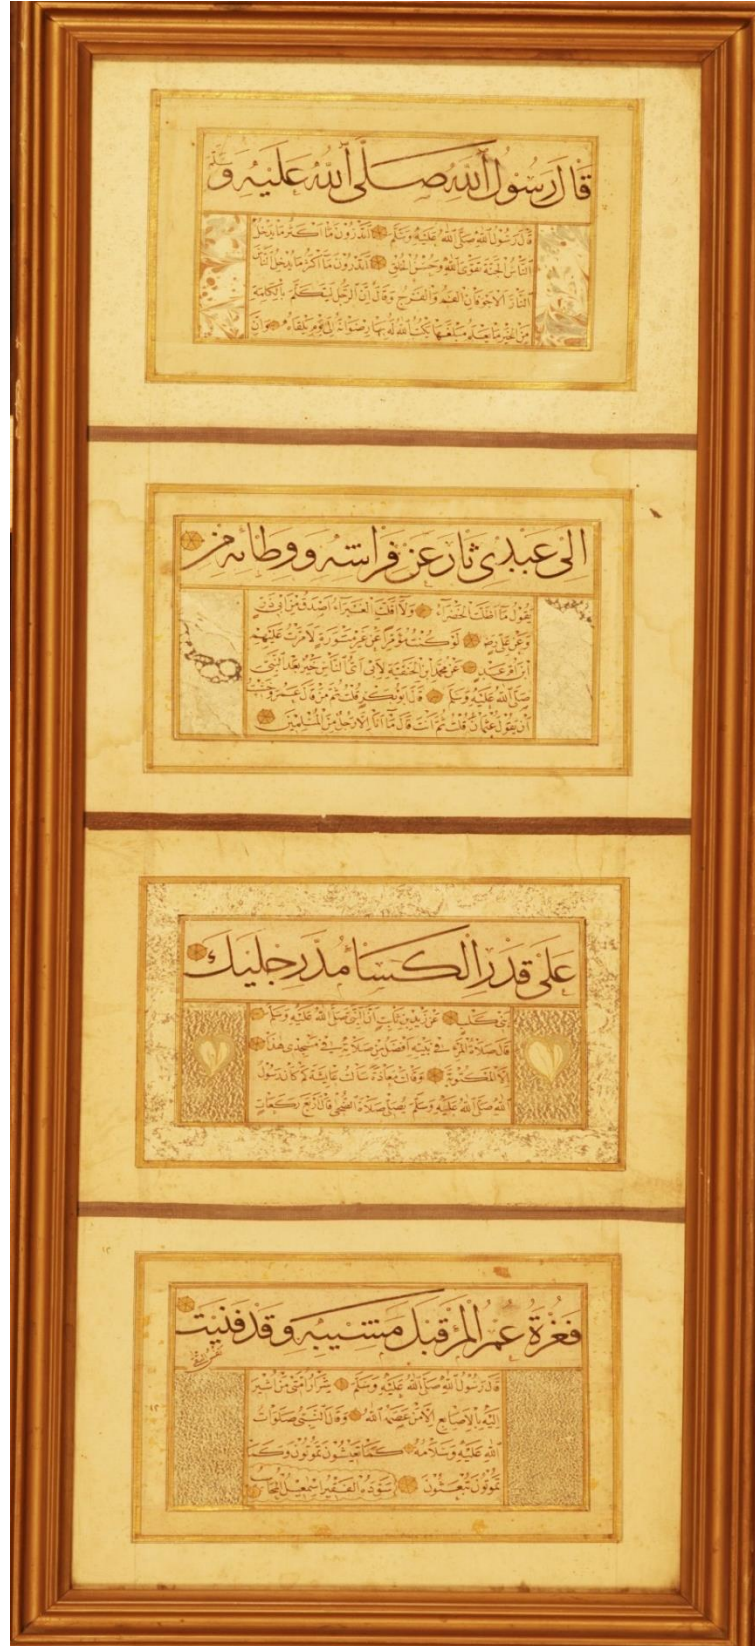 قَالَ رَسُولُ اللهِ صَلَّى اللهُ عَلَيْهِ وَسَلَّمَ
قَالَ رَسُولُ اللهِ صَلَّى اللهُ عَلَيْهِ وَسَلَّمَ أَتَدْرُونَ مَا أَكْثَرُ مَا يُدْخِلُ
النَّاسَ الْجَنَّةَ تَقْوَى اللهِ وَحُسْنُ الْخُلُقِ أَتَدْرُونَ مَا أَكْثَرُ مَا يُدْخِلُ النَّاسَ
النَّارَ الْأَجْوَفَانِ الْفَمُ وَالْفَرْجُ وَقَالَ إِنَّ الرَّجُلَ لَيَتَكَلَّمُ بِالْكَلِمَةِ
مِنَ الْخَيْرِ مَا يَعْلَمُ مَبْلَغَهَا يَكْتُبُ اللهُ لَهُ بِهَا رِضْوَانَهُ إِلَى يَوْمِ يَلْقَاهُ وَإِنَّ
إلى عبدي ثار عن فراشه ووطائه من
يَقُولُ مَا أَظَلَّتِ الْخَضْرَاءُ وَلَا أَقَلَّتِ الْغَبْرَاءُ أَصْدَقَ مِنْ أَبِي ذَرٍّ
وَعَنْ عَلِيٍّ لَوْ كُنْتُ مُؤَمِّرًا عَنْ غَيْرِ مَشُورَةٍ لَأَمَّرْتُ عَلَيْهِمْ
ابْنَ أُمِّ عَبْدٍ عَنْ مُحَمَّدِ ابْنِ الْحَنَفِيَّةِ لِأَبِي أَيُّ النَّاسِ خَيْرٌ بَعْدَ النَّبِيِّ
صَلَّى اللهُ عَلَيْهِ وَسَلَّمَ قَالَ أَبُو بَكْرٍ قُلْتُ ثُمَّ مَنْ قَالَ عُمَرُ وَخَشِيتُ
أَنْ يَقُولَ عُثْمَانُ قُلْتُ ثُمَّ أَنْتَ قَالَ مَا أَنَا إِلَّا رَجُلٌ مِنَ الْمُسْلِمِينَ
عَلَى قَدْرِ الْكِسَاءِ مُدَّ رِجْلَيْكَ
بَنِي كَلْبٍ عَنْ زَيْدِ بْنِ ثَابِتٍ أَنَّ النَّبِيَّ صَلَّى اللهُ عَلَيْهِ وَسَلَّمَ
قَالَ صَلَاةُ الْمَرْءِ فِي بَيْتِهِ أَفْضَلُ مِنْ صَلَاتِهِ فِي مَسْجِدِي هَذَا
إِلَّا الْمَكْتُوبَةَ وَقَالَتْ مُعَاذَةُ سَأَلْتُ عَائِشَةَ كَمْ كَانَ رَسُولُ
اللهِ صَلَّى اللهُ عَلَيْهِ وَسَلَّمَ يُصَلِّي صَلَاةَ الضُّحَى قَالَ أَرْبَعَ رَكَعَاتٍ
فَغُرَّةُ عُمْرِ الْمَرْءِ قَبْلَ مَشِيبِهِ وَقَدْ فَنِيَتْ
قَالَ رَسُولُ اللهِ صَلَّى اللهُ عَلَيْهِ وَسَلَّمَ شِرَارُ أُمَّتِي مَنْ أُشِيرَ
إِلَيْهِ بِالْأَصَابِعِ إِلَّا مَنْ عَصَمَهُ اللهُ وَقَالَ النَّبِيُّ صَلَوَاتُ
اللهِ عَلَيْهِ وَسَلَامُهُ كَمَا تَعِيشُونَ تَمُوتُونَ وَكَمَا
تَمُوتُونَ تُبْعَثُونَ سَوَّدَهُ الْفَقِيرُ إِسْمَعِيلُ